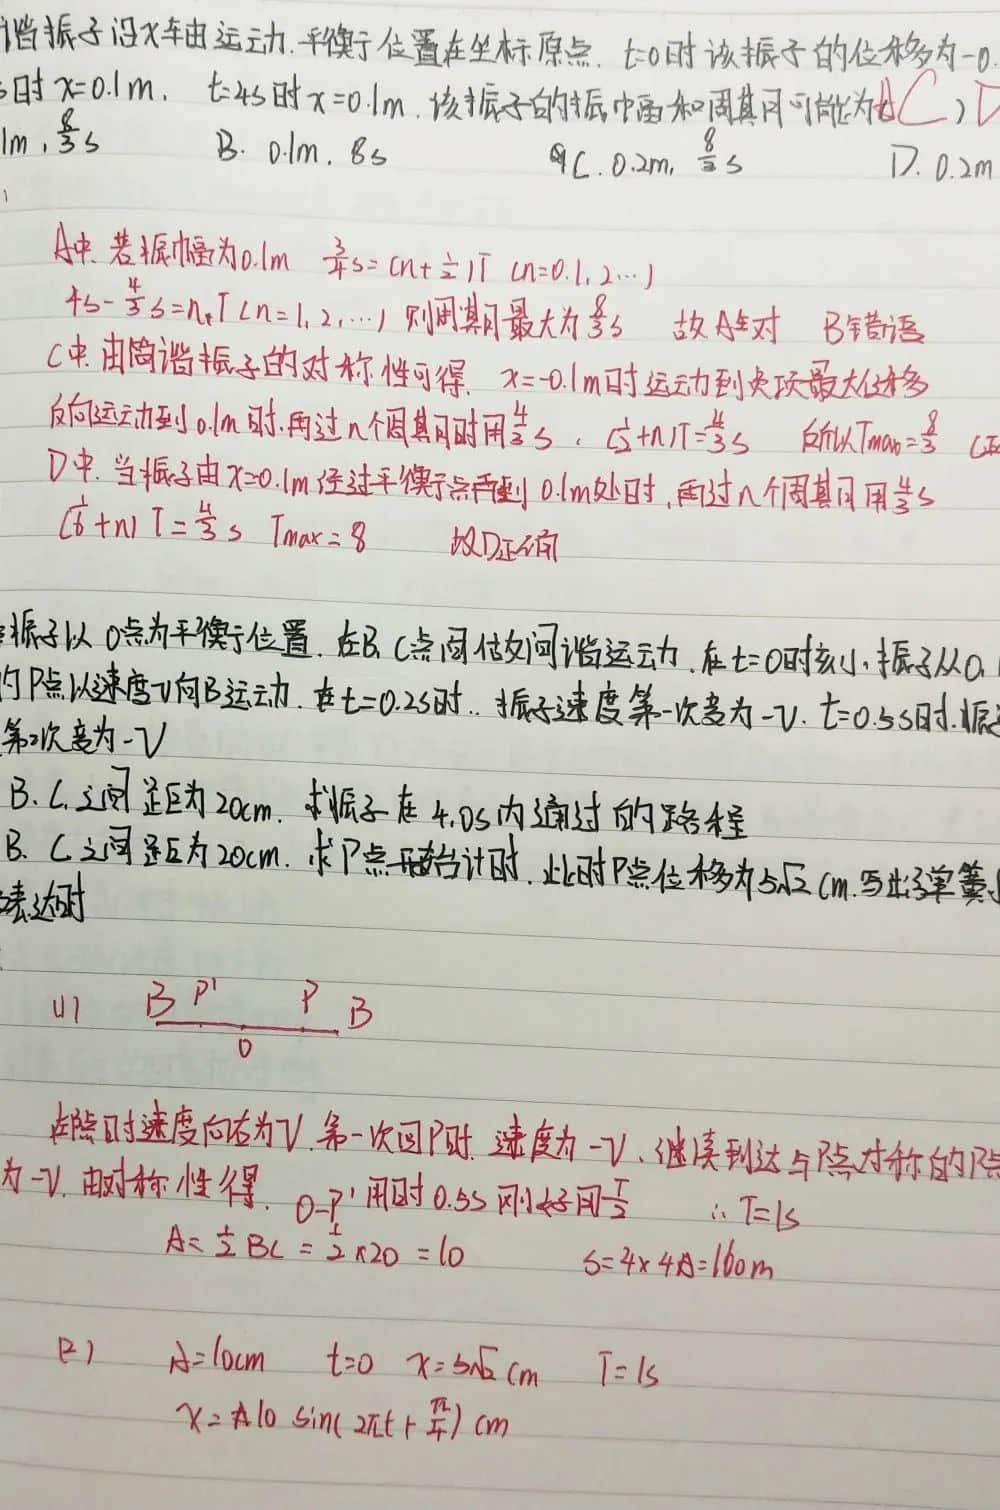 谐振子沿x轴运动.平衡位置在坐标原点. t=0时该振子的位移为-0.
s时x=0.1m. t=4s时x=0.1m.该振子的振幅和周期可能为 AC)D
1m, 8/3 s B. 0.1m, 8s C. 0.2m, 8/3 s D. 0.2m
A中.若振幅为0.1m 3/4 s=(n+1/2)T (n=0.1,2…)
4s-4/3 s=nT (n=1,2,…) 则周期最大为8/3 s 故A对 B错误
C中.由简谐振子的对称性可得. x=-0.1m时运动到负项最大位移
反向运动到0.1m时.再过n个周期时用4/3 s, (1/2+n)T=4/3 s 所以Tmax=8/3 C正
D中.当振子由x=0.1m经过平衡点再到0.1m处时,再过n个周期用4/3 s
(1/6+n)T=4/3 s Tmax=8 故D正确
振子以O点为平衡位置.在B.C点间做简谐运动.在t=0时刻,振子从O.
的P点以速度v向B运动.在t=0.2s时..振子速度第一次变为-v. t=0.5s时.振子
第2次变为-v
B.C.之间距为20cm.求振子在4.0s内通过的路程
B. C之间距为20cm.求P点开始计时.此时P点位移为5√2 cm.写出弹簧
表达时
(1) B P' P B
O
在P点时速度向右为V.第一次回P时.速度为-v.继续到达与P点对称的P点
为-v.由对称性得. O-P'用时0.5s刚好间T/2 ∴T=1s
A=1/2 BC=1/2×20=10 S=4×4A=160m
(2) A=10cm t=0 x=5√2 cm T=1s
x=10 sin(2πt+π/4) cm